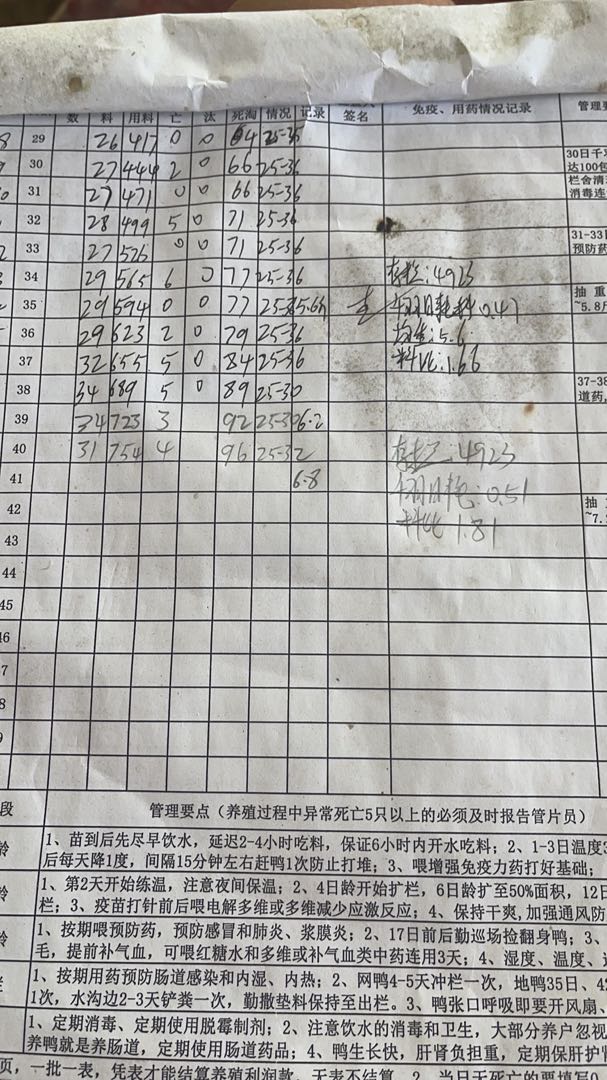 数 料 用料 亡 汰 死淘 情况 记录 签名 免疫、用药情况记录 管理要
29 26 417 0 0 64 25-35
30 27 444 2 0 66 25-36 30日千
达100包
31 27 471 0 0 66 25-36 栏舍清
消毒连
32 28 499 5 0 71 25-36
33 27 526 0 0 71 25-36 31-33日
预防药
34 29 565 6 0 77 25-36 存栏:4923
35 29 594 0 0 77 0.47 抽 重
~5.8斤
36 29 623 2 0 79 25-36 5.6
37 32 655 5 0 84 25-36 料比:1.66
38 34 689 5 0 89 25-30 37-38
道药,
39 34 723 3 92 25-30 6.2
40 31 754 4 96 25-32 存栏:4923
41 6.8 0.51
42 料比 1.81 抽
~7.
43
44
45
46
7
8
9
段 管理要点（养殖过程中异常死亡5只以上的必须及时报告管片员）
龄 1、苗到后先尽早饮水，延迟2-4小时吃料，保证6小时内开水吃料；2、1-3日温度3
后每天降1度，间隔15分钟左右赶鸭1次防止打堆；3、喂增强免疫力药打好基础；
龄 1、第2天开始练温，注意夜间保温；2、4日龄开始扩栏，6日龄扩至50%面积，12日
栏；3、疫苗打针前后喂电解多维或多维减少应激反应；4、保持干爽,加强通风防
龄 1、按期喂预防药，预防感冒和肺炎、浆膜炎；2、17日前后勤巡场捡翻身鸭；3、
毛，提前补气血，可喂红糖水和多维或补气血类中药连用3天；4、湿度、温度、通
1、按期用药预防肠道感染和内湿、内热；2、网鸭4-5天冲栏一次，地鸭35日、42
1次，水沟边2-3天铲粪一次，勤撒垫料保持至出栏。3、鸭张口呼吸即要开风扇、
1、定期消毒、定期使用脱霉制剂；2、注意饮水的消毒和卫生，大部分养户忽视
养鸭就是养肠道，定期使用肠道药品；4、鸭生长快，肝肾负担重，定期保肝护肾
页，一批一表，凭表才能结算养殖利润款，无表不结算。2、当日无死亡的要填写0